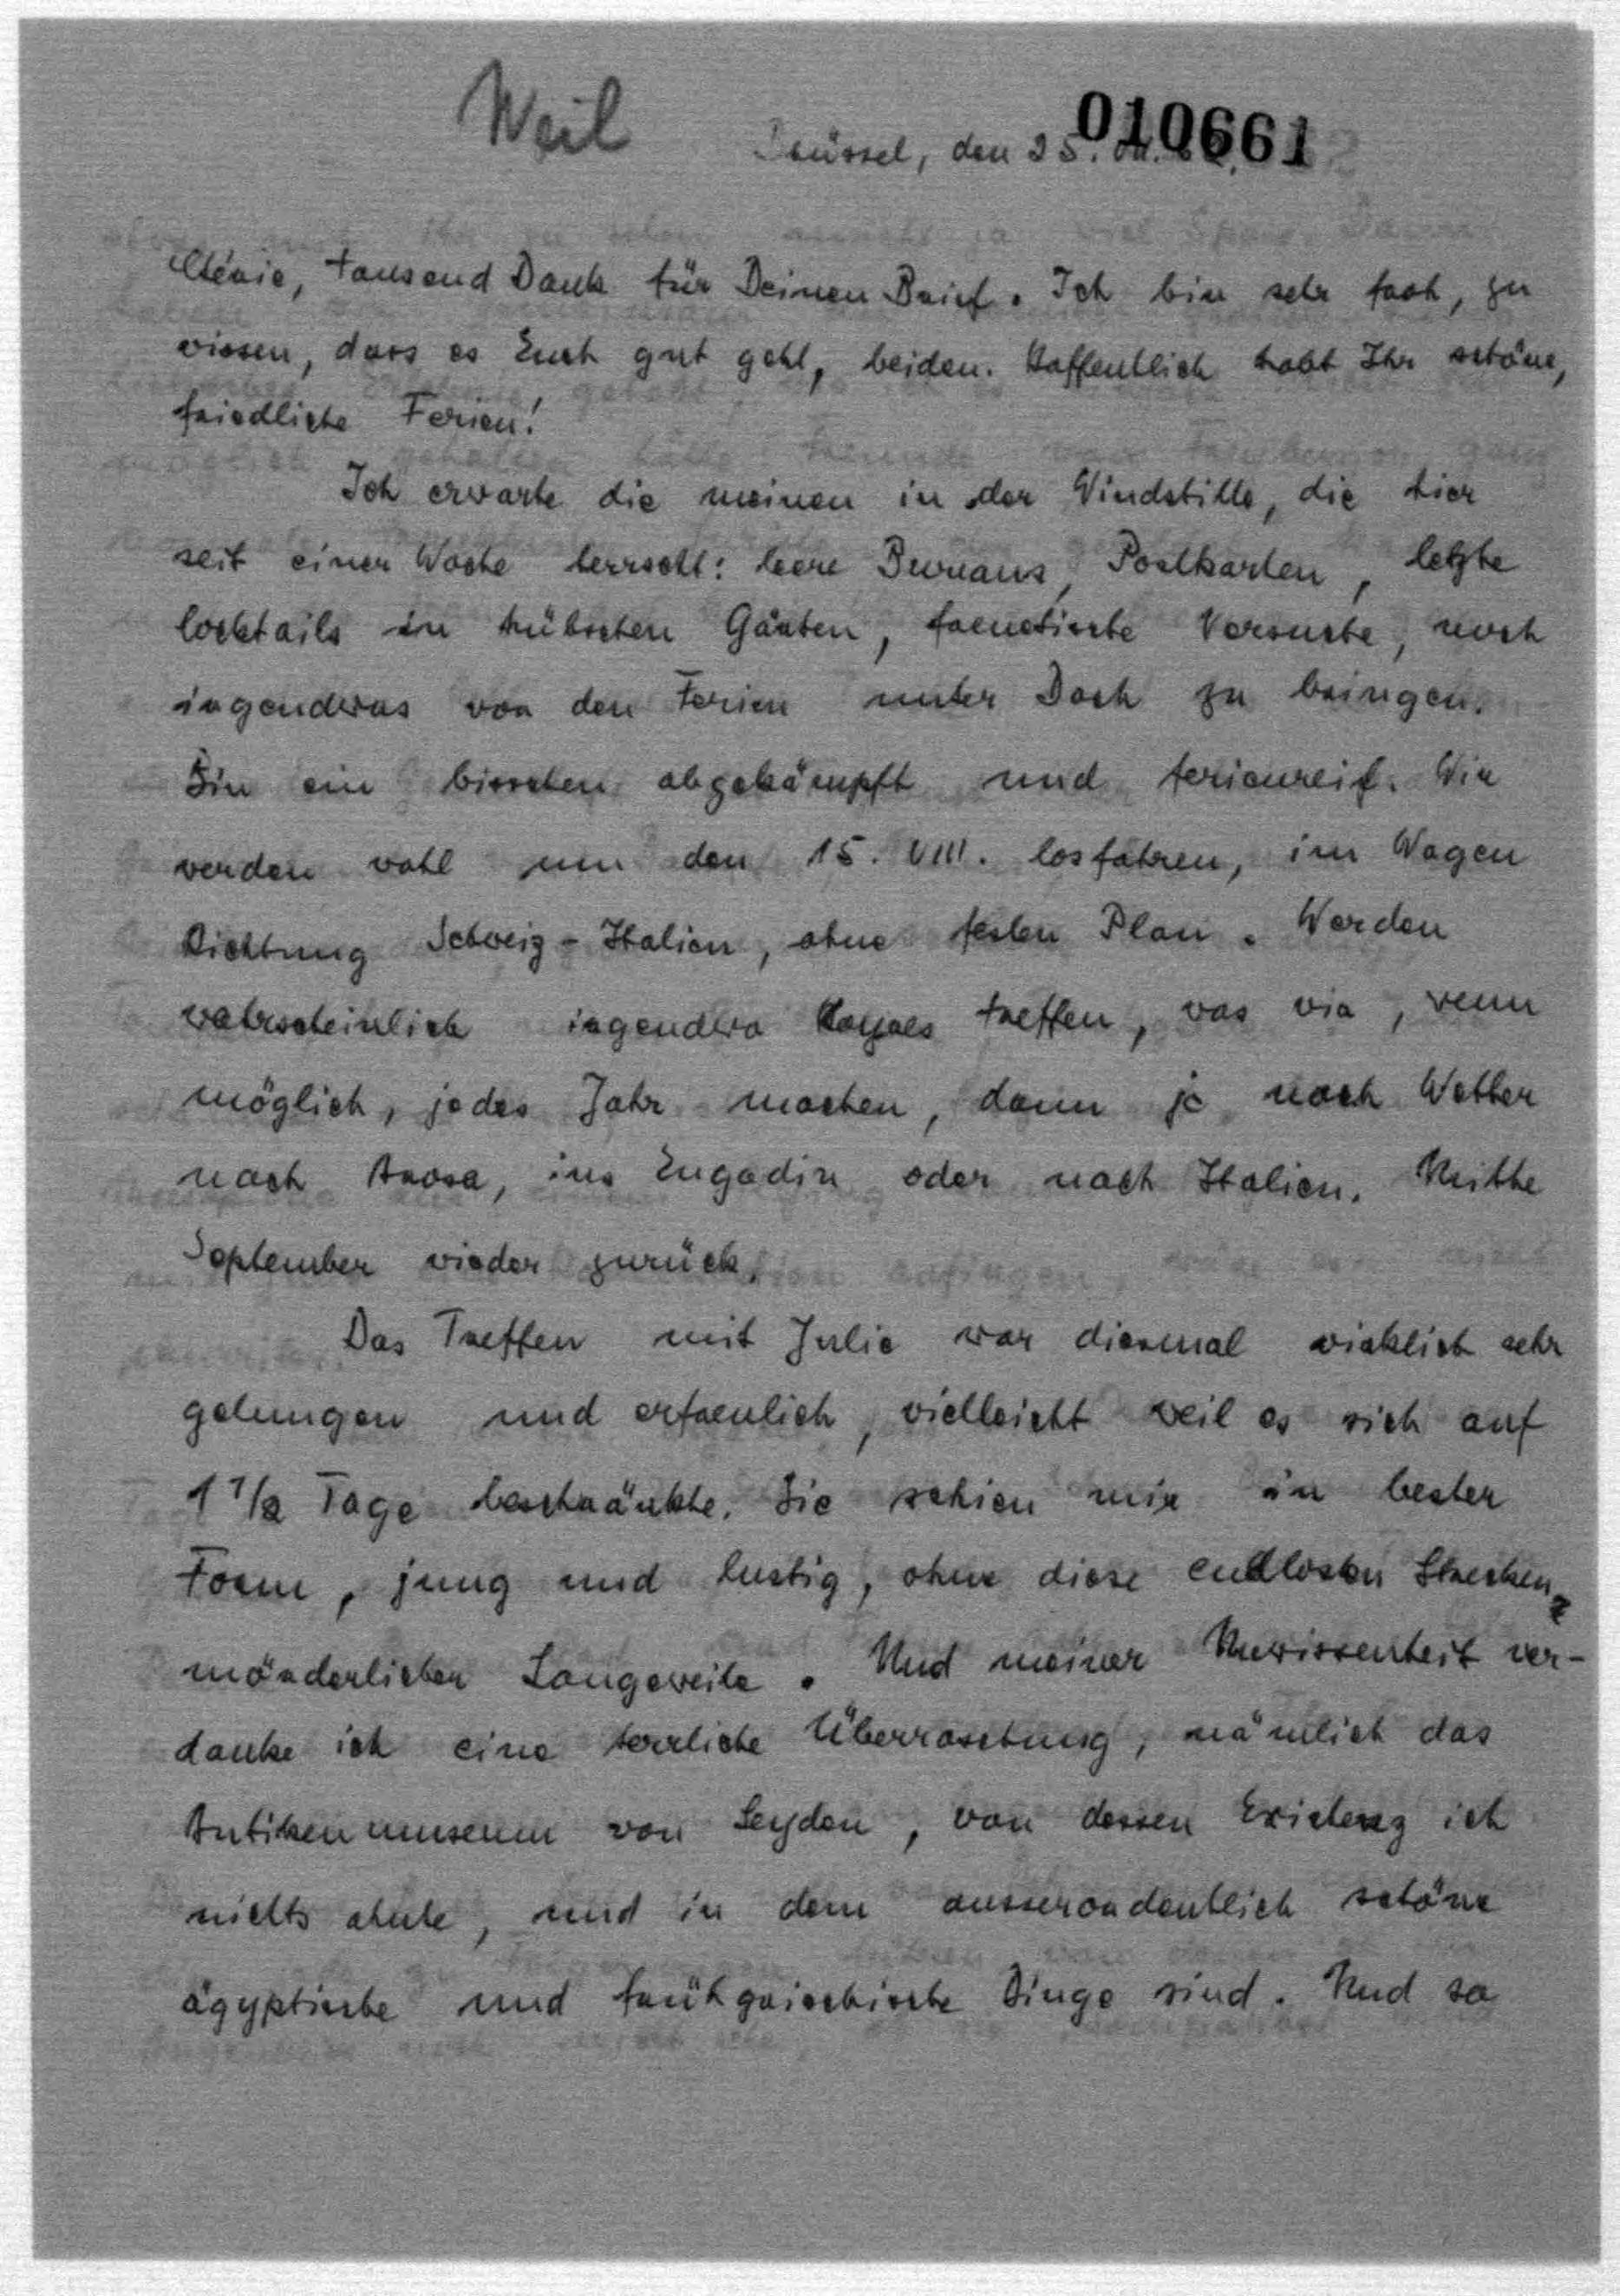 Weil
010661
Brüssel, den 25.
Chérie, tausend Dank für Deinen Brief. Ich bin sehr froh, zu
wissen, dass es Euch gut geht, beiden. Hoffentlich habt Ihr schöne,
friedliche Ferien!
Ich erwarte die meinen in der Windstille, die hier
seit einer Woche herrscht: leere Bureaus, Postkarten, letzte
Cocktails in hübschen Gärten, frenetische Versuche, noch
irgendwas vor den Ferien unter Dach zu bringen.
Bin ein bisschen abgekämpft und ferienreif. Wir
werden wohl um den 15. VIII. losfahren, im Wagen
Richtung Schweiz - Italien, ohne festen Plan. Werden
wahrscheinlich irgendwo treffen, was wir, wenn
möglich, jedes Jahr machen, dann je nach Wetter
nach Arosa, ins Engadin oder nach Italien. Mitte
September wieder zurück.
Das Treffen mit Julie war diesmal wirklich sehr
gelungen und erfreulich, vielleicht weil es sich auf
1 1/2 Tage beschränkte. Sie schien mir in bester
Form, jung und lustig, ohne diese endlosen Strecken
mörderlicher Langeweile. Und meiner Unwissenheit ver-
danke ich eine herrliche Überraschung, nämlich das
Antikenmuseum von Leyden, von dessen Existenz ich
nichts ahnte, und in dem ausserordentlich schöne
ägyptische und frühgriechische Dinge sind. Und so